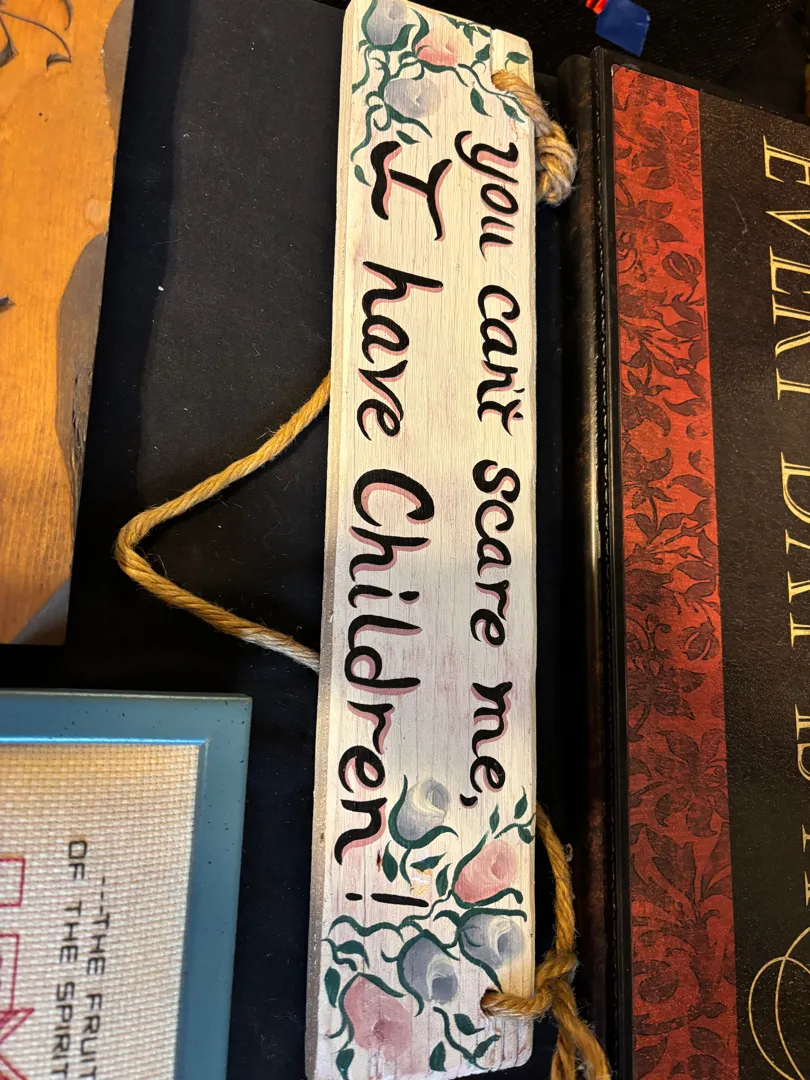 you can't scare me,
I have Children!
EVERY DAY IS A
---THE FRUIT
OF THE SPIRIT